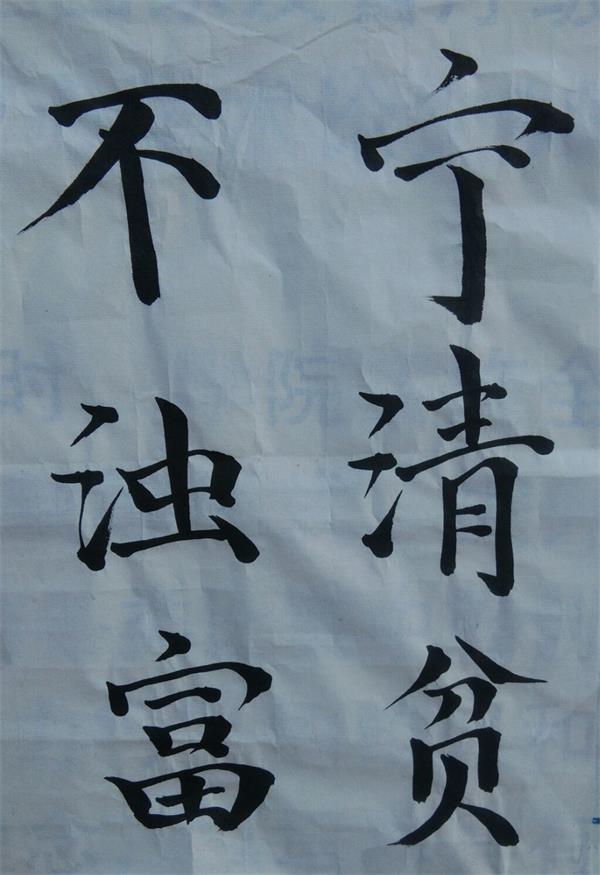 宁清贫
不浊富